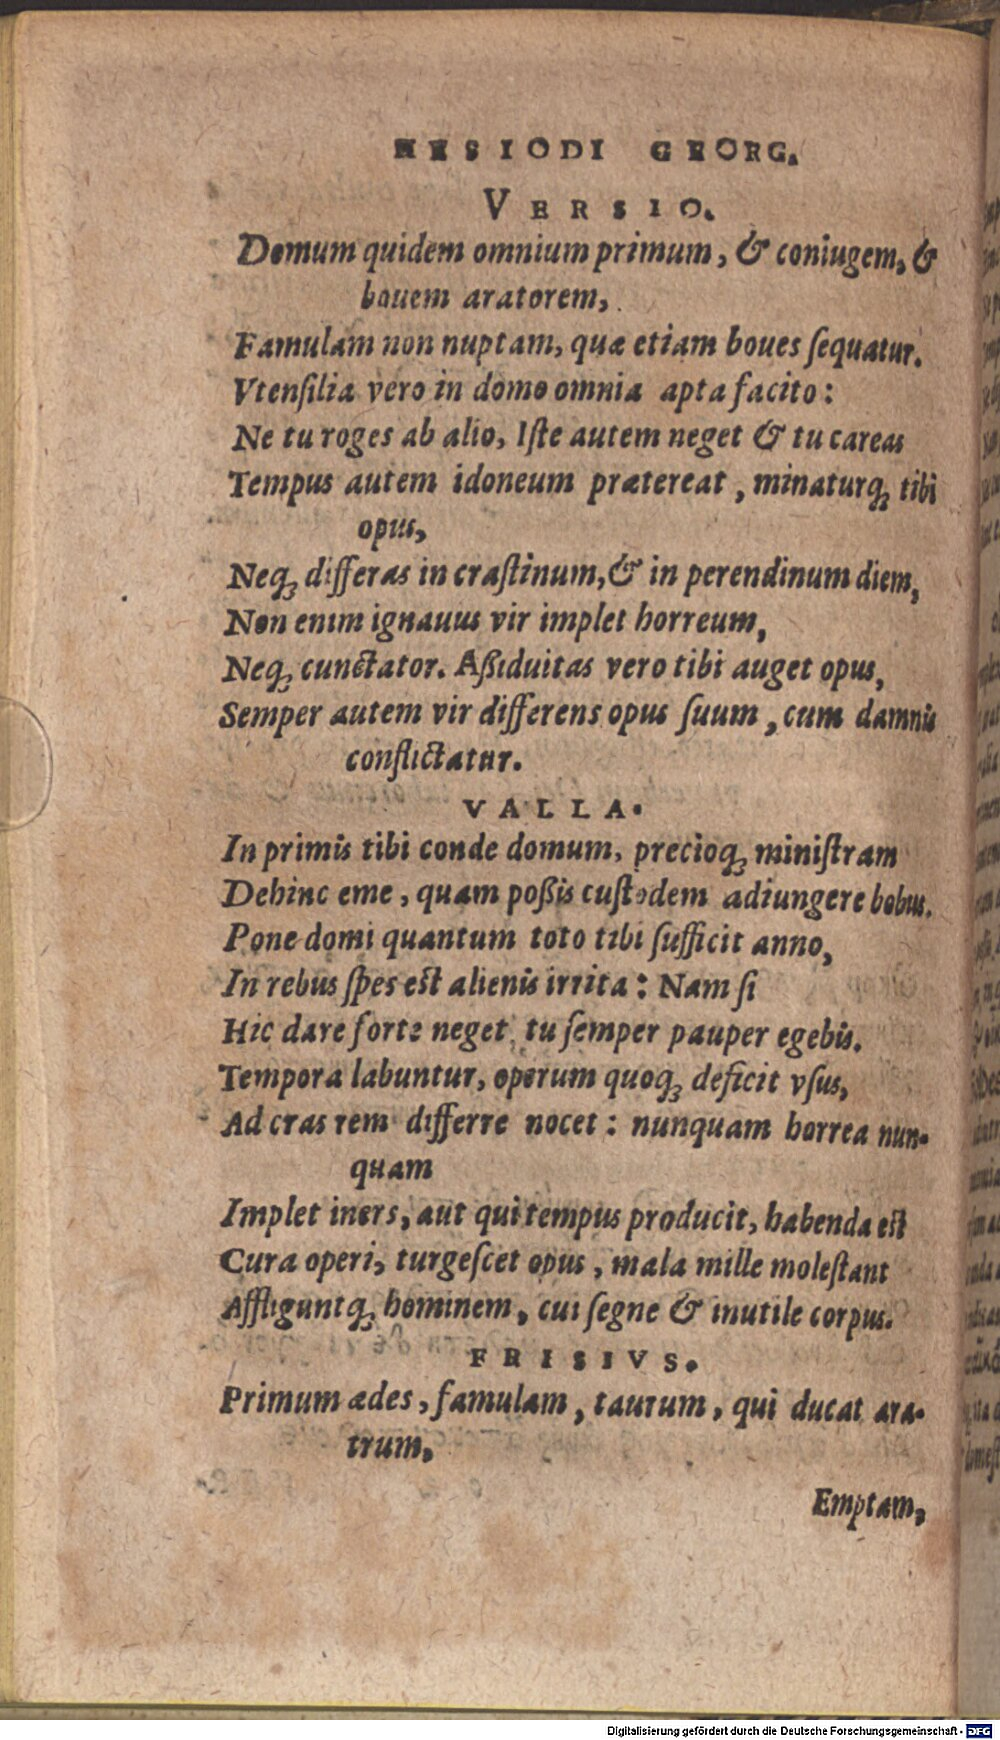 HESIODI GEORG.
VERSIO.
Domum quidem omnium primum, & coniugem, &
bouem aratorem,
Famulam non nuptam, quæ etiam boues ſequatur.
Vtenſilia vero in domo omnia apta facito:
Ne tu roges ab alio, Iſte autem neget & tu careas
Tempus autem idoneum prætereat, minaturq́; tibi
opus,
Neq; differas in craſtinum, & in perendinum diem,
Non enim ignauus vir implet horreum,
Neq; cunctator. Aßiduitas vero tibi auget opus,
Semper autem vir differens opus ſuum, cum damnis
conflictatur.
VALLA.
In primis tibi conde domum, precioq; miniſtram
Dehinc eme, quam poßis cuſtodem adiungere bobus.
Pone domi quantum toto tibi ſufficit anno,
In rebus ſpes eſt alienis irrita: Nam ſi
Hic dare forte neget, tu ſemper pauper egebis.
Tempora labuntur, operum quoq; deficit vſus,
Ad cras rem differre nocet: nunquam horrea nun-
quam
Implet iners, aut qui tempus producit, habenda eſt
Cura operi, turgeſcet opus, mala mille moleſtant
Affliguntq; hominem, cui ſegne & inutile corpus.
FRISIVS.
Primum ædes, famulam, taurum, qui ducat ara-
trum,
Emptam,
Digitalisierung gefördert durch die Deutsche Forschungsgemeinschaft - DFG